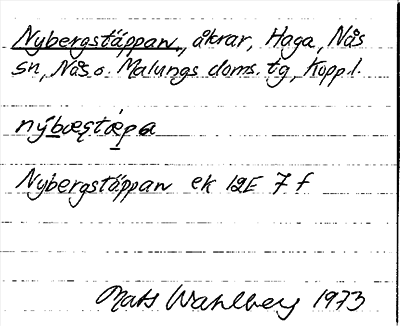 Nybergstäppan, åkrar, Haga, Nås
sn, Nås o. Malungs doms. tg, Koppl.
nýbæstæpa
Nybergstäppan ek 12E 7 f
Mats Wahlberg 1973